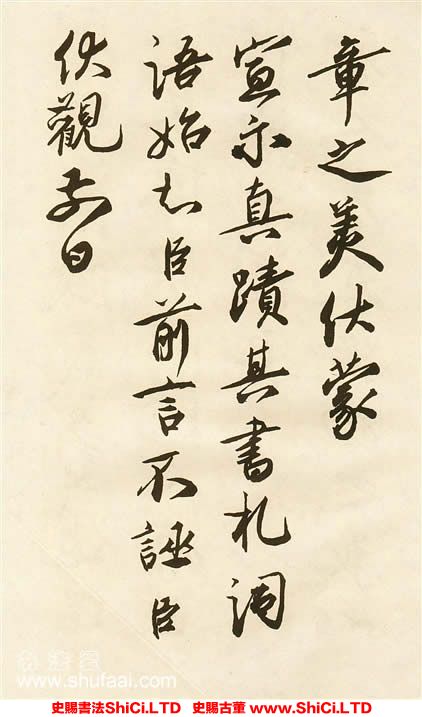 章之美伏蒙
宣示真蹟其書札詞
語始知臣前言不誣臣
伏觀前日
www.shufaai.com
史賜書法ShiCi.LTD 史賜古董 www.ShiCi.LTD